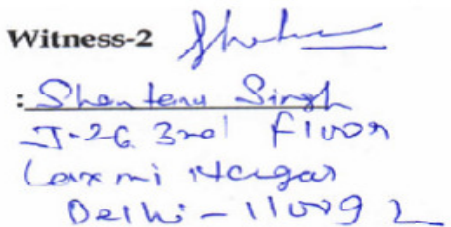 Witness-2
: Shantenu Singh
J-26 3rd Floor
Laxmi Nagar
Delhi - 110092